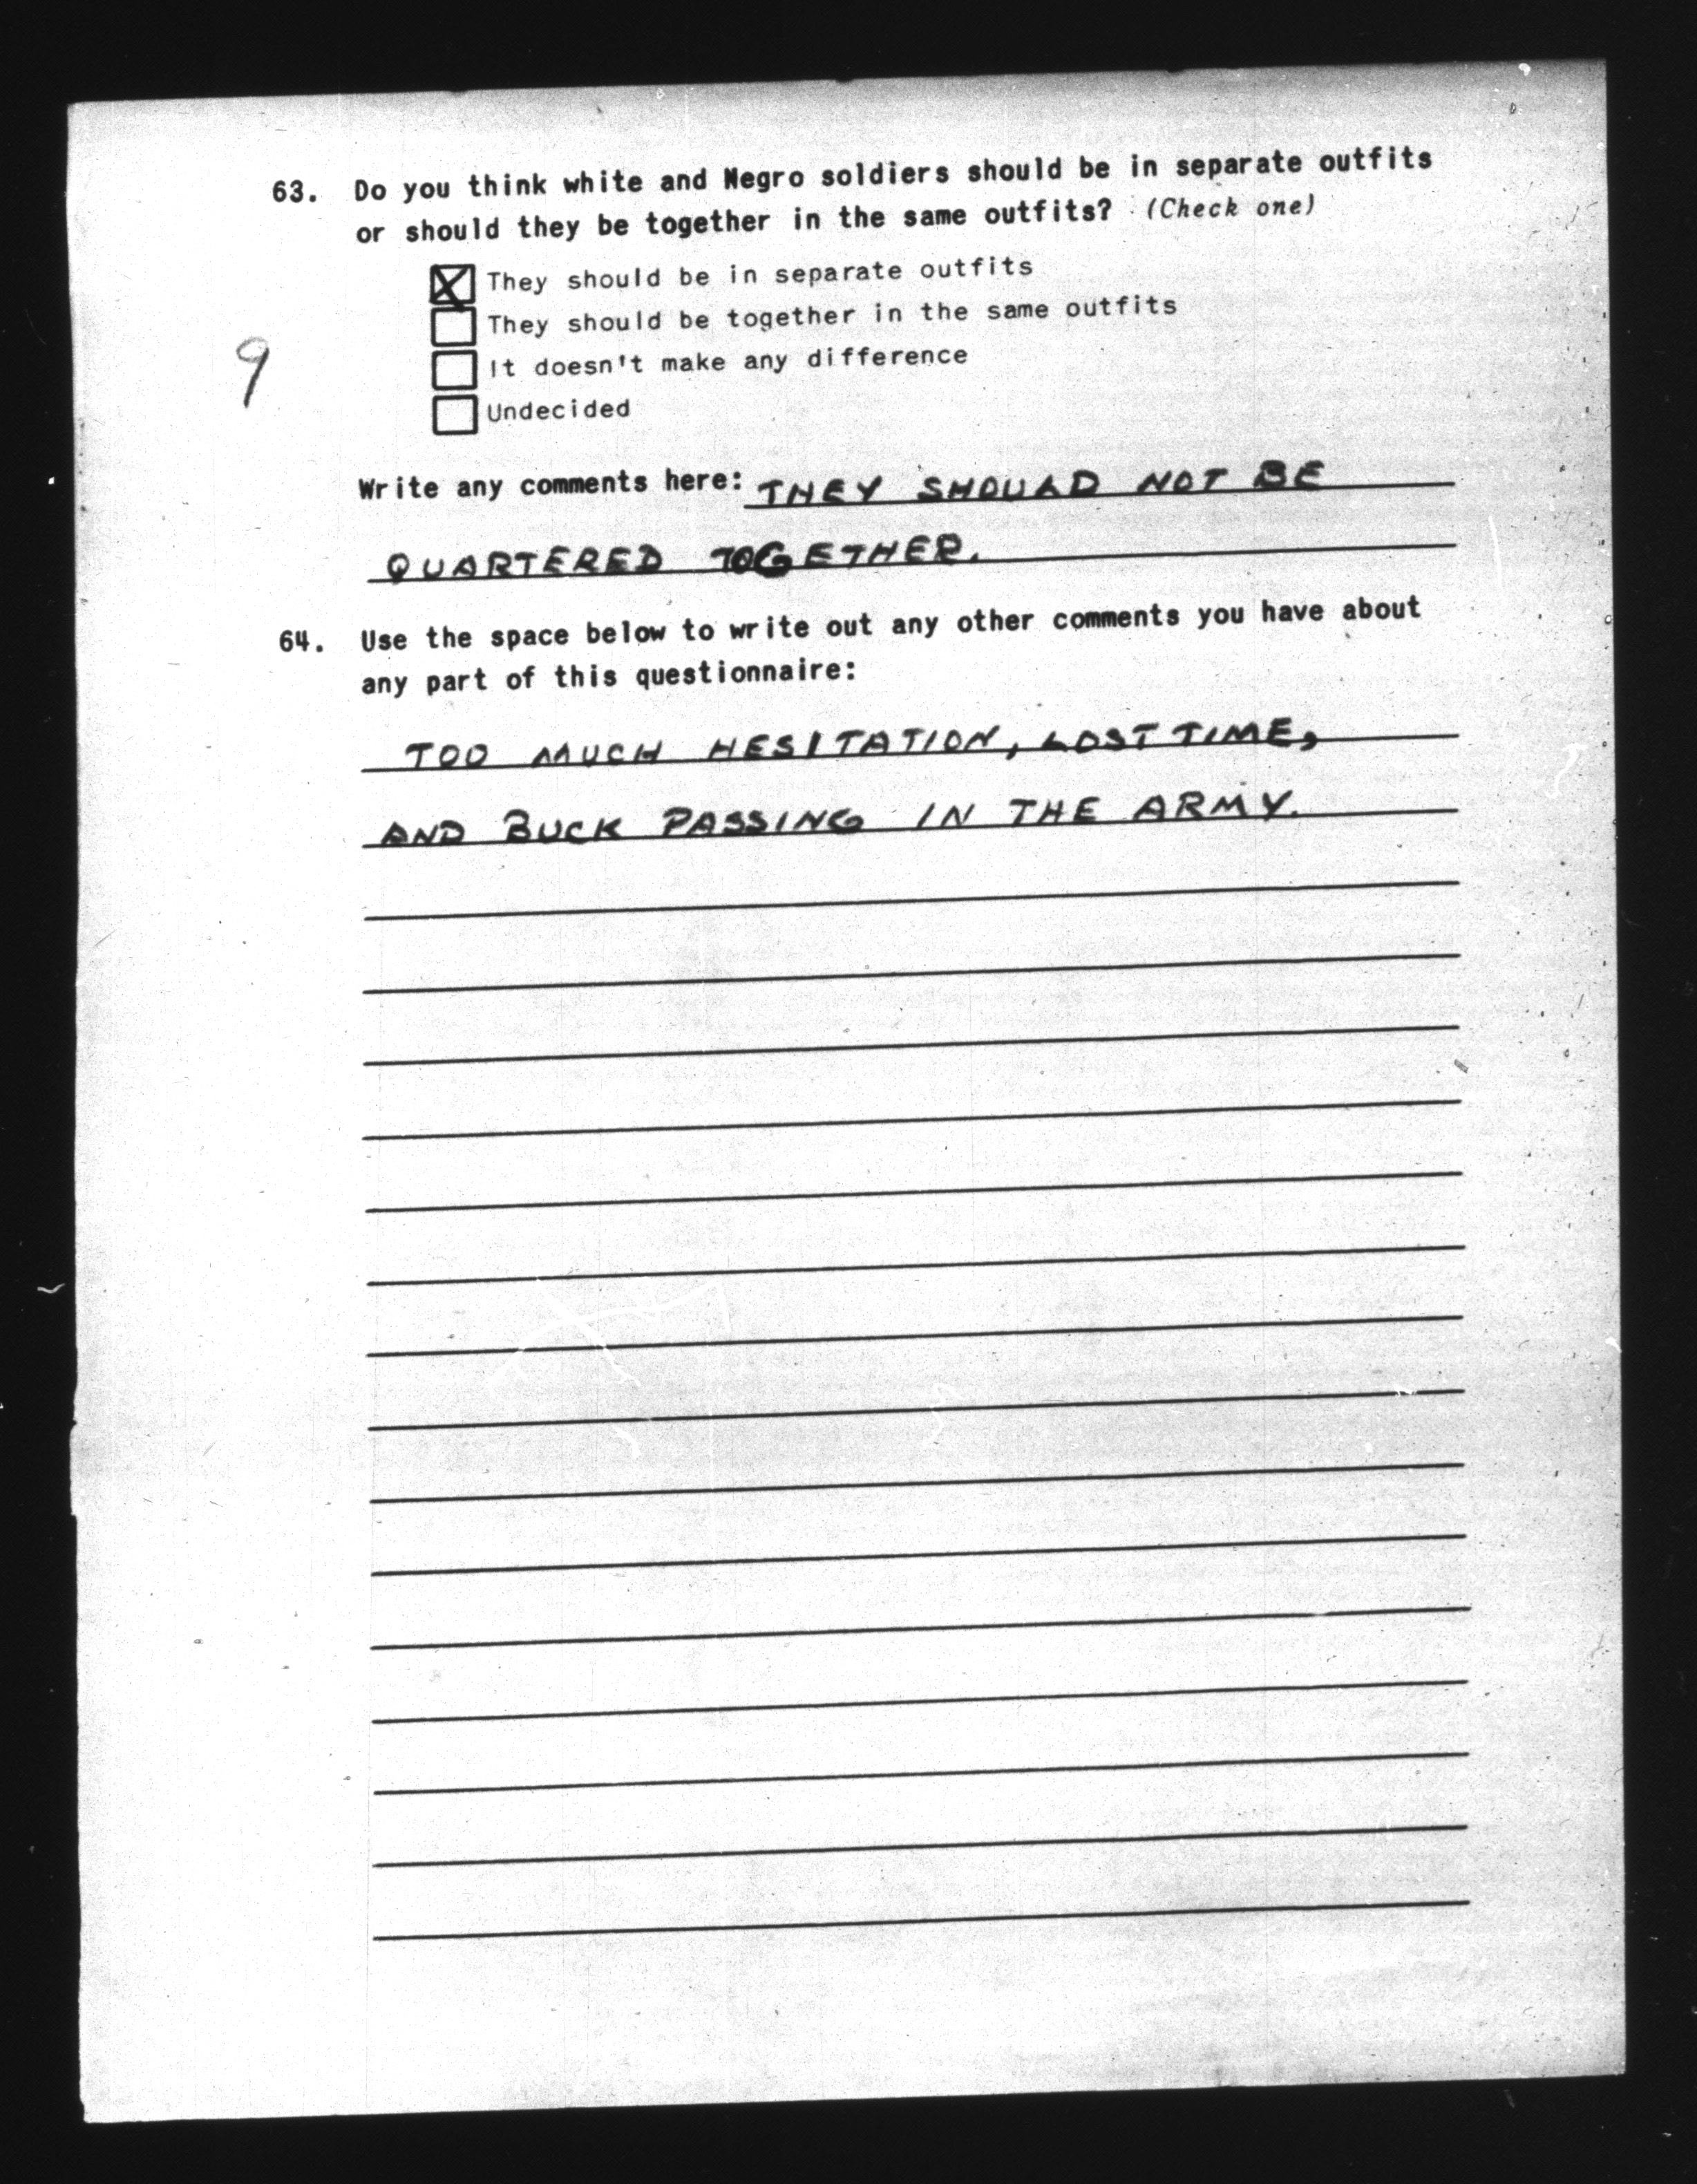 63. Do you think white and Negro soldiers should be in separate outfits
or should they be together in the same outfits? (Check one)
They should be in separate outfits
They should be together in the same outfits
9
It doesn't make any difference
Undecided
Write any comments here: THEY SHOULD NOT BE
QUARTERED TOGETHER.
64. Use the space below to write out any other comments you have about
any part of this questionnaire:
TOO MUCH HESITATION, LOST TIME,
AND BUCK PASSING IN THE ARMY.